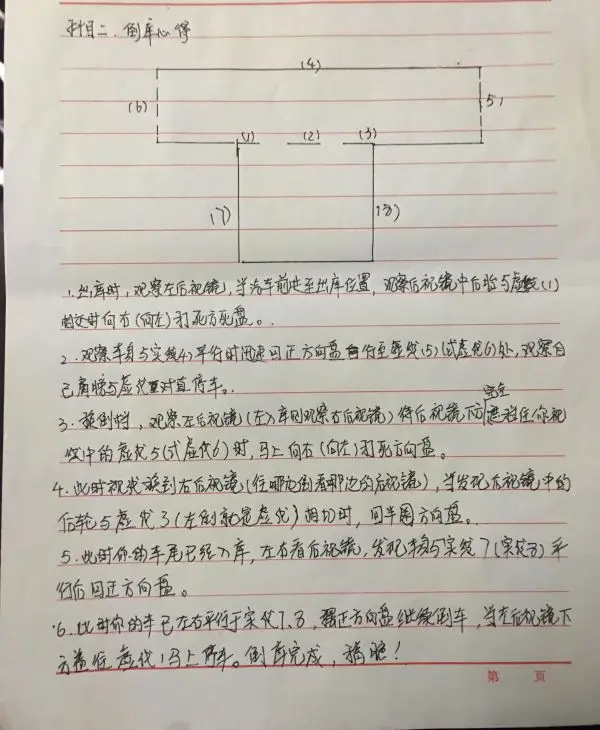 科目二、倒库心得
(4)
(6)
5)
(1) (2) (3)
(7)
(8)
1.出库时,观察左后视镜,当汽车前进至出库位置,观察后视镜中后轮与虚线(1)
相交时向右(向左)打死方向盘。
2.观察车身与实线(4)平行时迅速回正方向盘 自行至虚线(5)(或虚线6)处,观察自
己肩膀与虚线对直停车。
3.换倒档,观察左后视镜(左入库则观察右后视镜)待后视镜下方完全遮住你视
线中的虚线5(或虚线6)时,马上向右(向左)打死方向盘。
4.此时视线换到右后视镜(往哪边倒看哪边的后视镜),当发现后视镜中的
后轮与虚线3(左倒就是虚线)相切时,回半圈方向盘。
5.此时你的车尾已经入库,左右看后视镜,发现车身与实线7(实线8)平
行后回正方向盘。
6.此时你的车已左右平行于实线7.8,摆正方向盘继续倒车,当左后视镜下
方盖住虚线1马上停车。倒库完成,稍息!
第 页